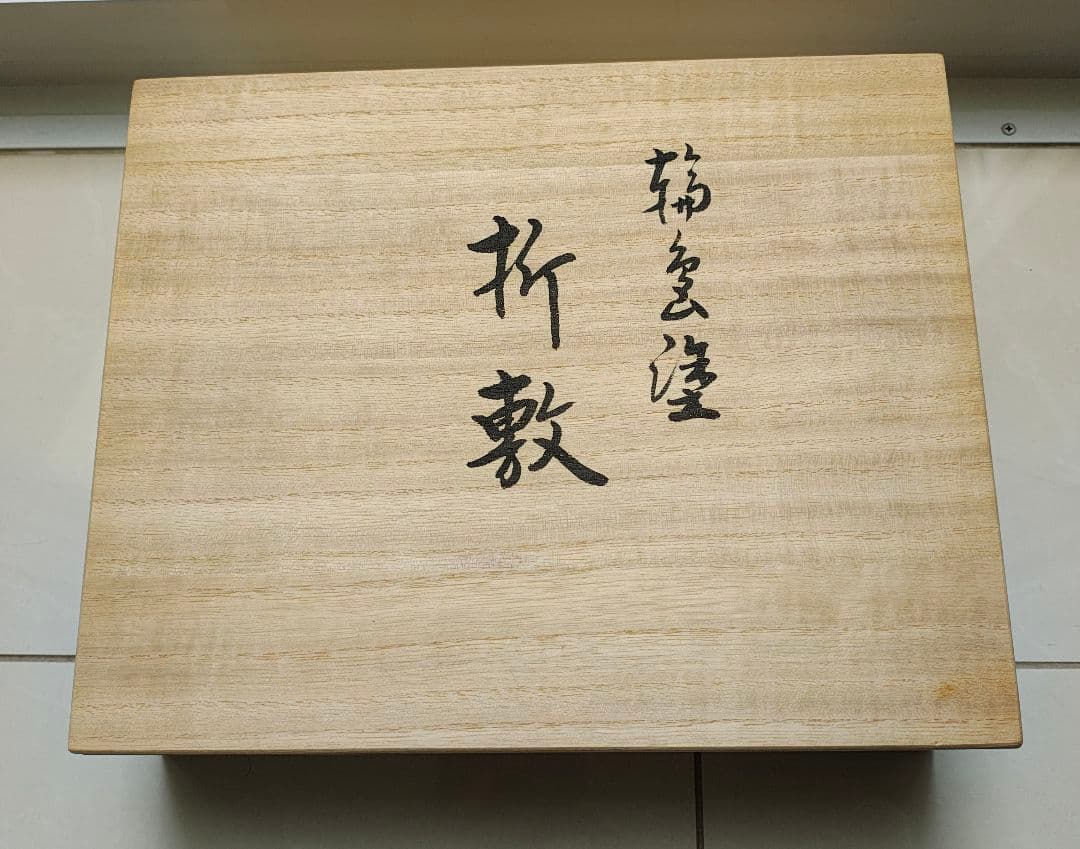 輪島塗
折敷